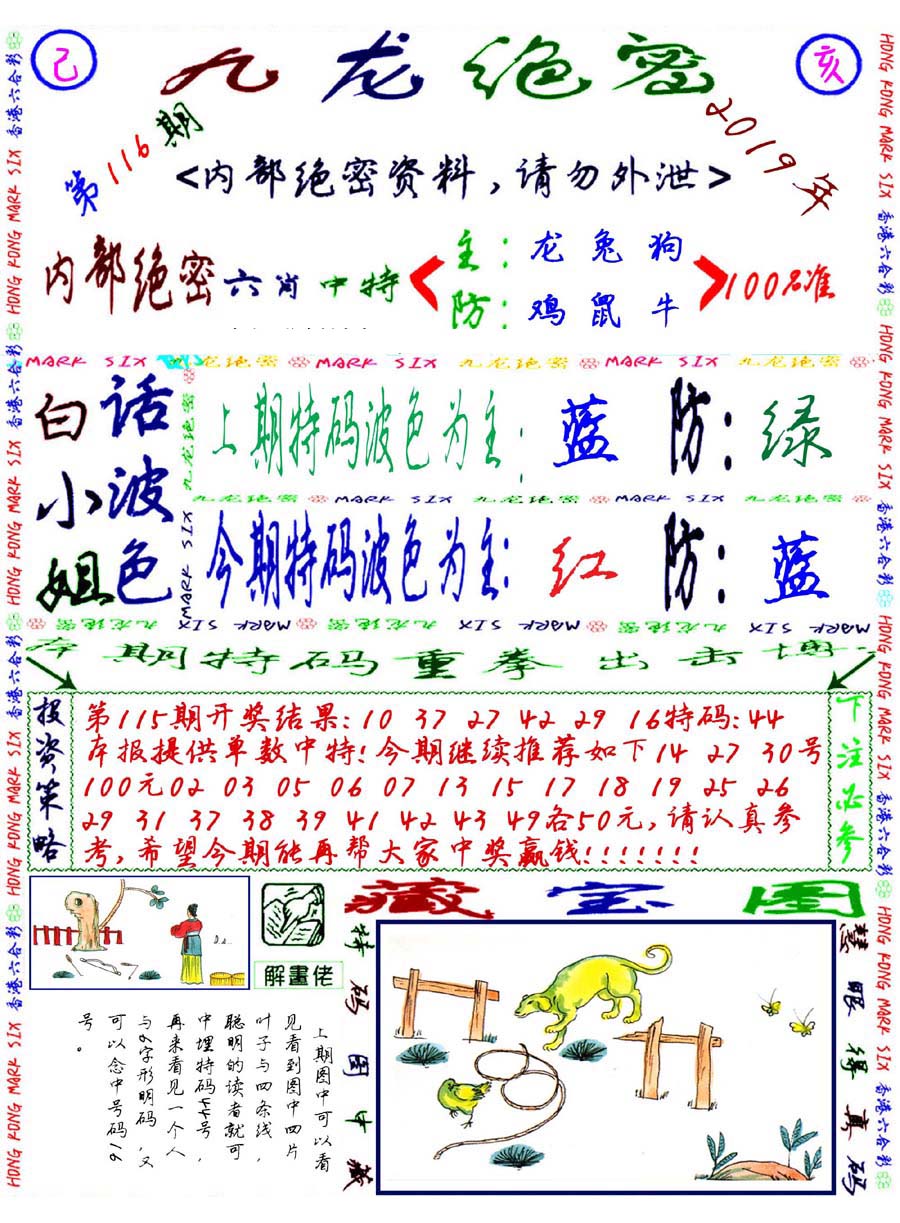 己
九龙绝密
亥
第116期
2019年
<内部绝密资料,请勿外泄>
内部绝密六肖中特
主:龙兔狗
防:鸡鼠牛
100%准
MARK SIX 九龙绝密 MARK SIX 九龙绝密 MARK SIX 九龙绝密
白话
小波
姐色
九龙绝密 MARK SIX
上期特码波色为主:蓝 防:绿
九龙绝密 MARK SIX 九龙绝密 MARK SIX 九龙绝密
今期特码波色为主:红 防:蓝
MARK SIX 九龙绝密 MARK SIX 九龙绝密 MARK SIX 九龙绝密
本期特码重拳出击博
投资策略
第115期开奖结果:10 37 27 42 29 16特码:44
本报提供单数中特!今期继续推荐如下14 27 30号
100元02 03 05 06 07 13 15 17 18 19 25 26
29 31 37 38 39 41 42 43 49各50元,请认真参
考,希望今期能再帮大家中奖赢钱!!!!!!!
下注必参
解畫佬
藏宝图
特码图中藏
慧眼得真码
上期图中可以看
见看到图中四片
叶子与四条线,
聪明的读者就可
中埋特码44号,
再来看见一个人
与6字形明码,又
可以念中号码16
号。
HONG KONG MARK SIX 香港六合彩 HONG KONG MARK SIX 香港六合彩 HONG KONG MARK SIX 香港六合彩 HONG KONG MARK SIX 香港六合彩
HONG KONG MARK SIX 香港六合彩 HONG KONG MARK SIX 香港六合彩 HONG KONG MARK SIX 香港六合彩 HONG KONG MARK SIX 香港六合彩